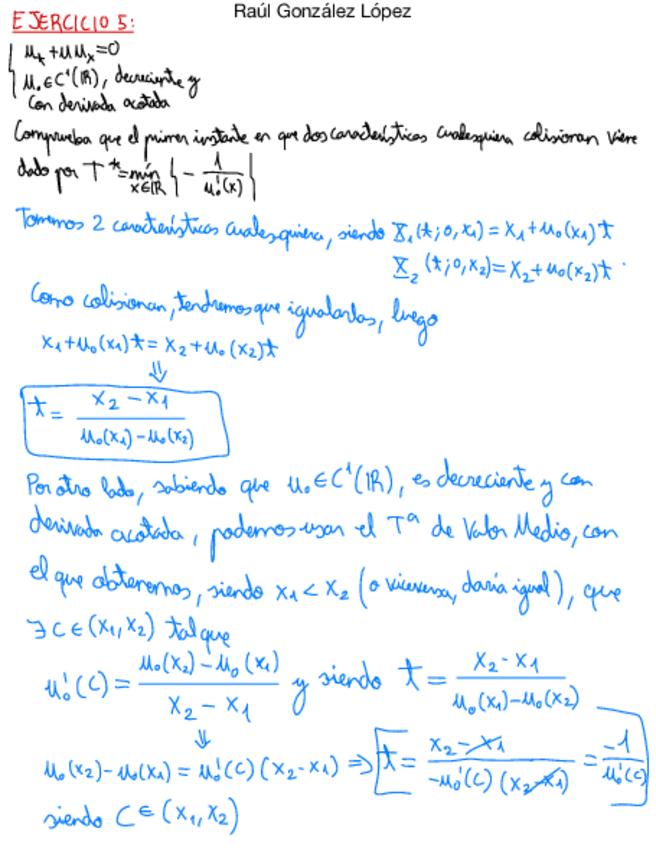 Raúl González López
EJERCICIO 5:
u_t + u u_x = 0
u₀ ∈ C¹(ℝ), decreciente y
con derivada acotada
Comprueba que el primer instante en que dos características cualesquiera colisionan viene
dado por T* = mín_{x∈ℝ} { - 1/u₀'(x) }
Tomemos 2 características cualesquiera, siendo X₁(t;0,x₁) = x₁ + u₀(x₁)t
X₂(t;0,x₂) = x₂ + u₀(x₂)t.
Como colisionan, tendremos que igualarlas, luego
x₁ + u₀(x₁)t = x₂ + u₀(x₂)t
⇓
t = (x₂ - x₁)/(u₀(x₁) - u₀(x₂))
Por otro lado, sabiendo que u₀ ∈ C¹(ℝ), es decreciente y con
derivada acotada, podemos usar el Tª de Valor Medio, con
el que obtenemos, siendo x₁ < x₂ (o viceversa, daría igual), que
∃ c ∈ (x₁, x₂) tal que
u₀'(c) = (u₀(x₂) - u₀(x₁))/(x₂ - x₁) y siendo t = (x₂ - x₁)/(u₀(x₁) - u₀(x₂))
⇓
u₀(x₂) - u₀(x₁) = u₀'(c)(x₂ - x₁) ⇒ t = (x₂ - x₁)/(-u₀'(c)(x₂ - x₁)) = -1/u₀'(c)
siendo c ∈ (x₁, x₂)